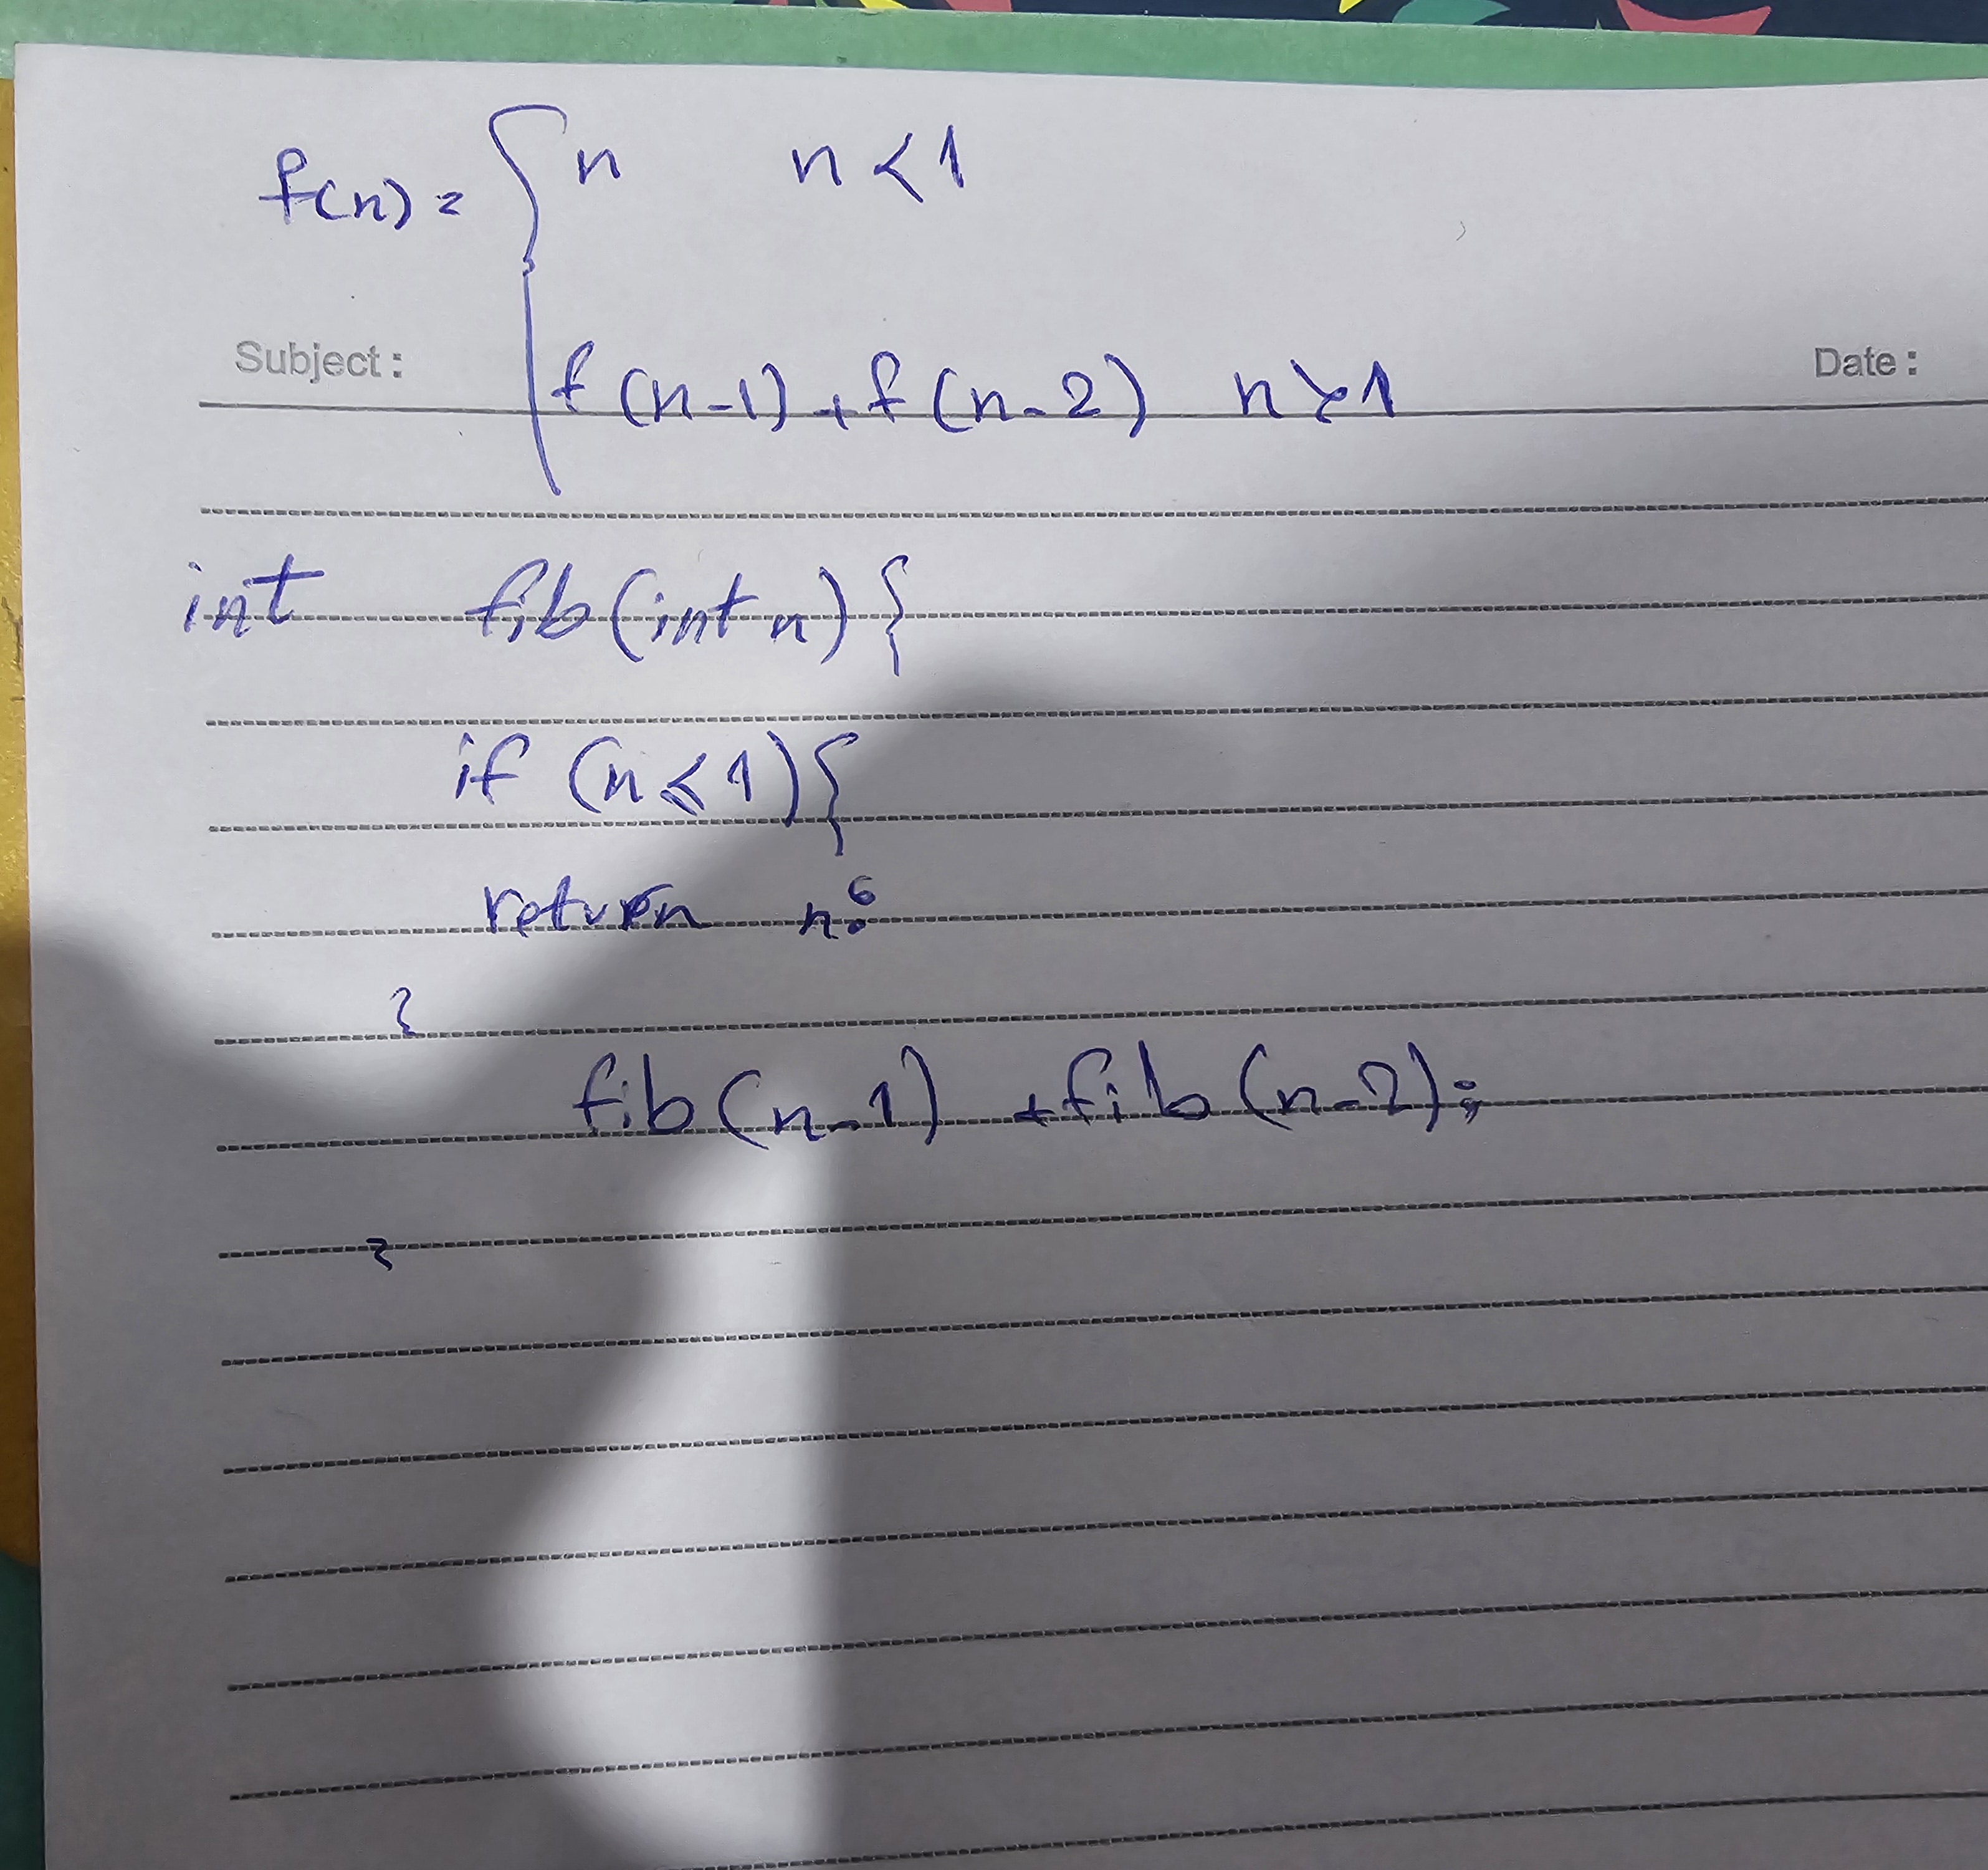 f(n) = { n n < 1
f(n-1) + f(n-2) n > 1
Subject : Date :
int fib(int n) {
if (n ≤ 1) {
return n;
}
fib(n-1) + fib(n-2);
}